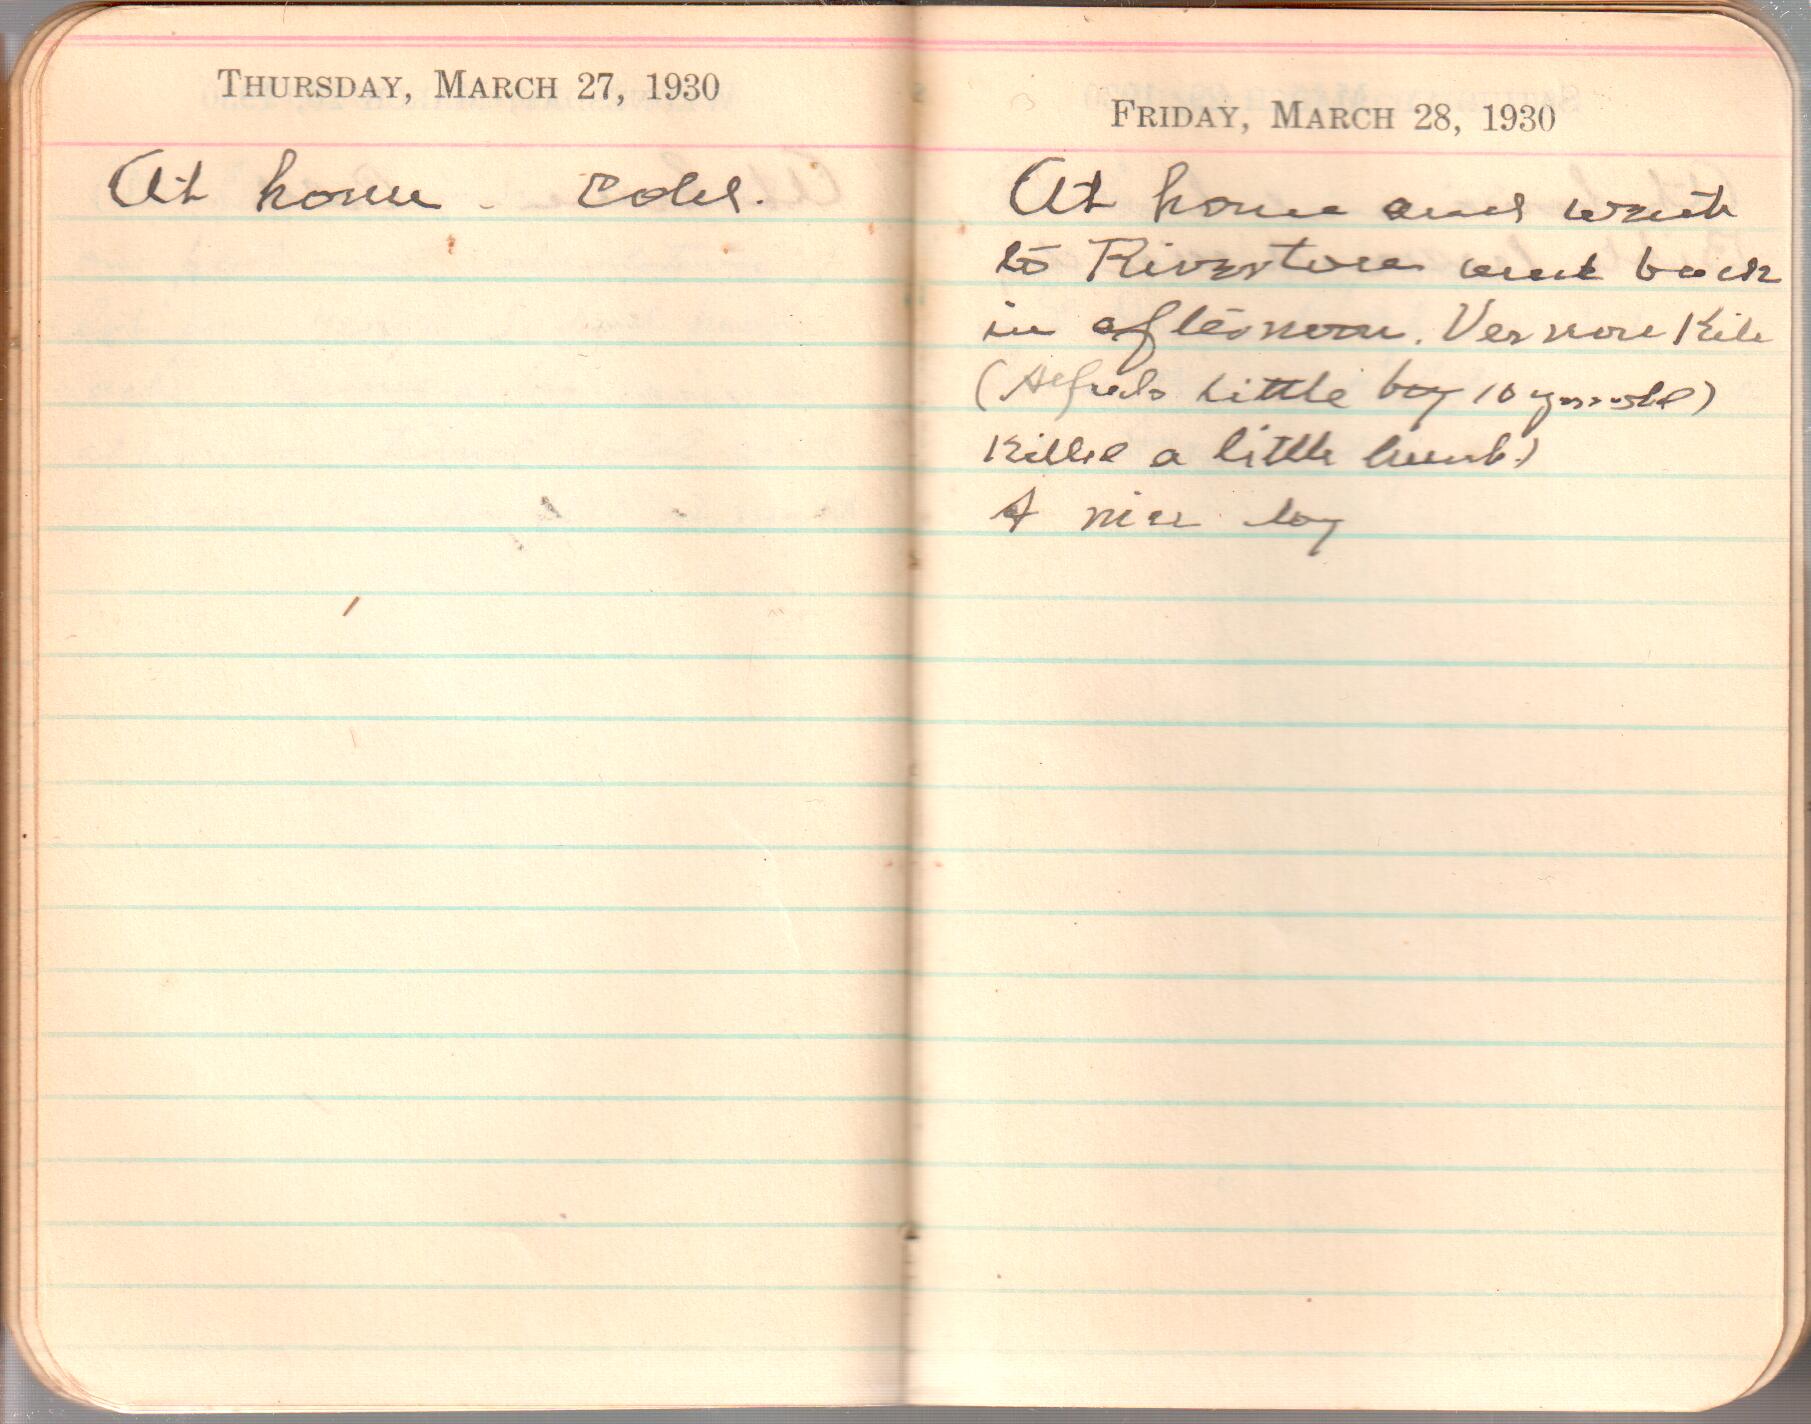 THURSDAY, MARCH 27, 1930
At home. Cold.
FRIDAY, MARCH 28, 1930
At home and went
to Rivertown and back
in afternoon. Vernon
(Alfreds little boy 10 yrs old)
Killed a little
A nice day